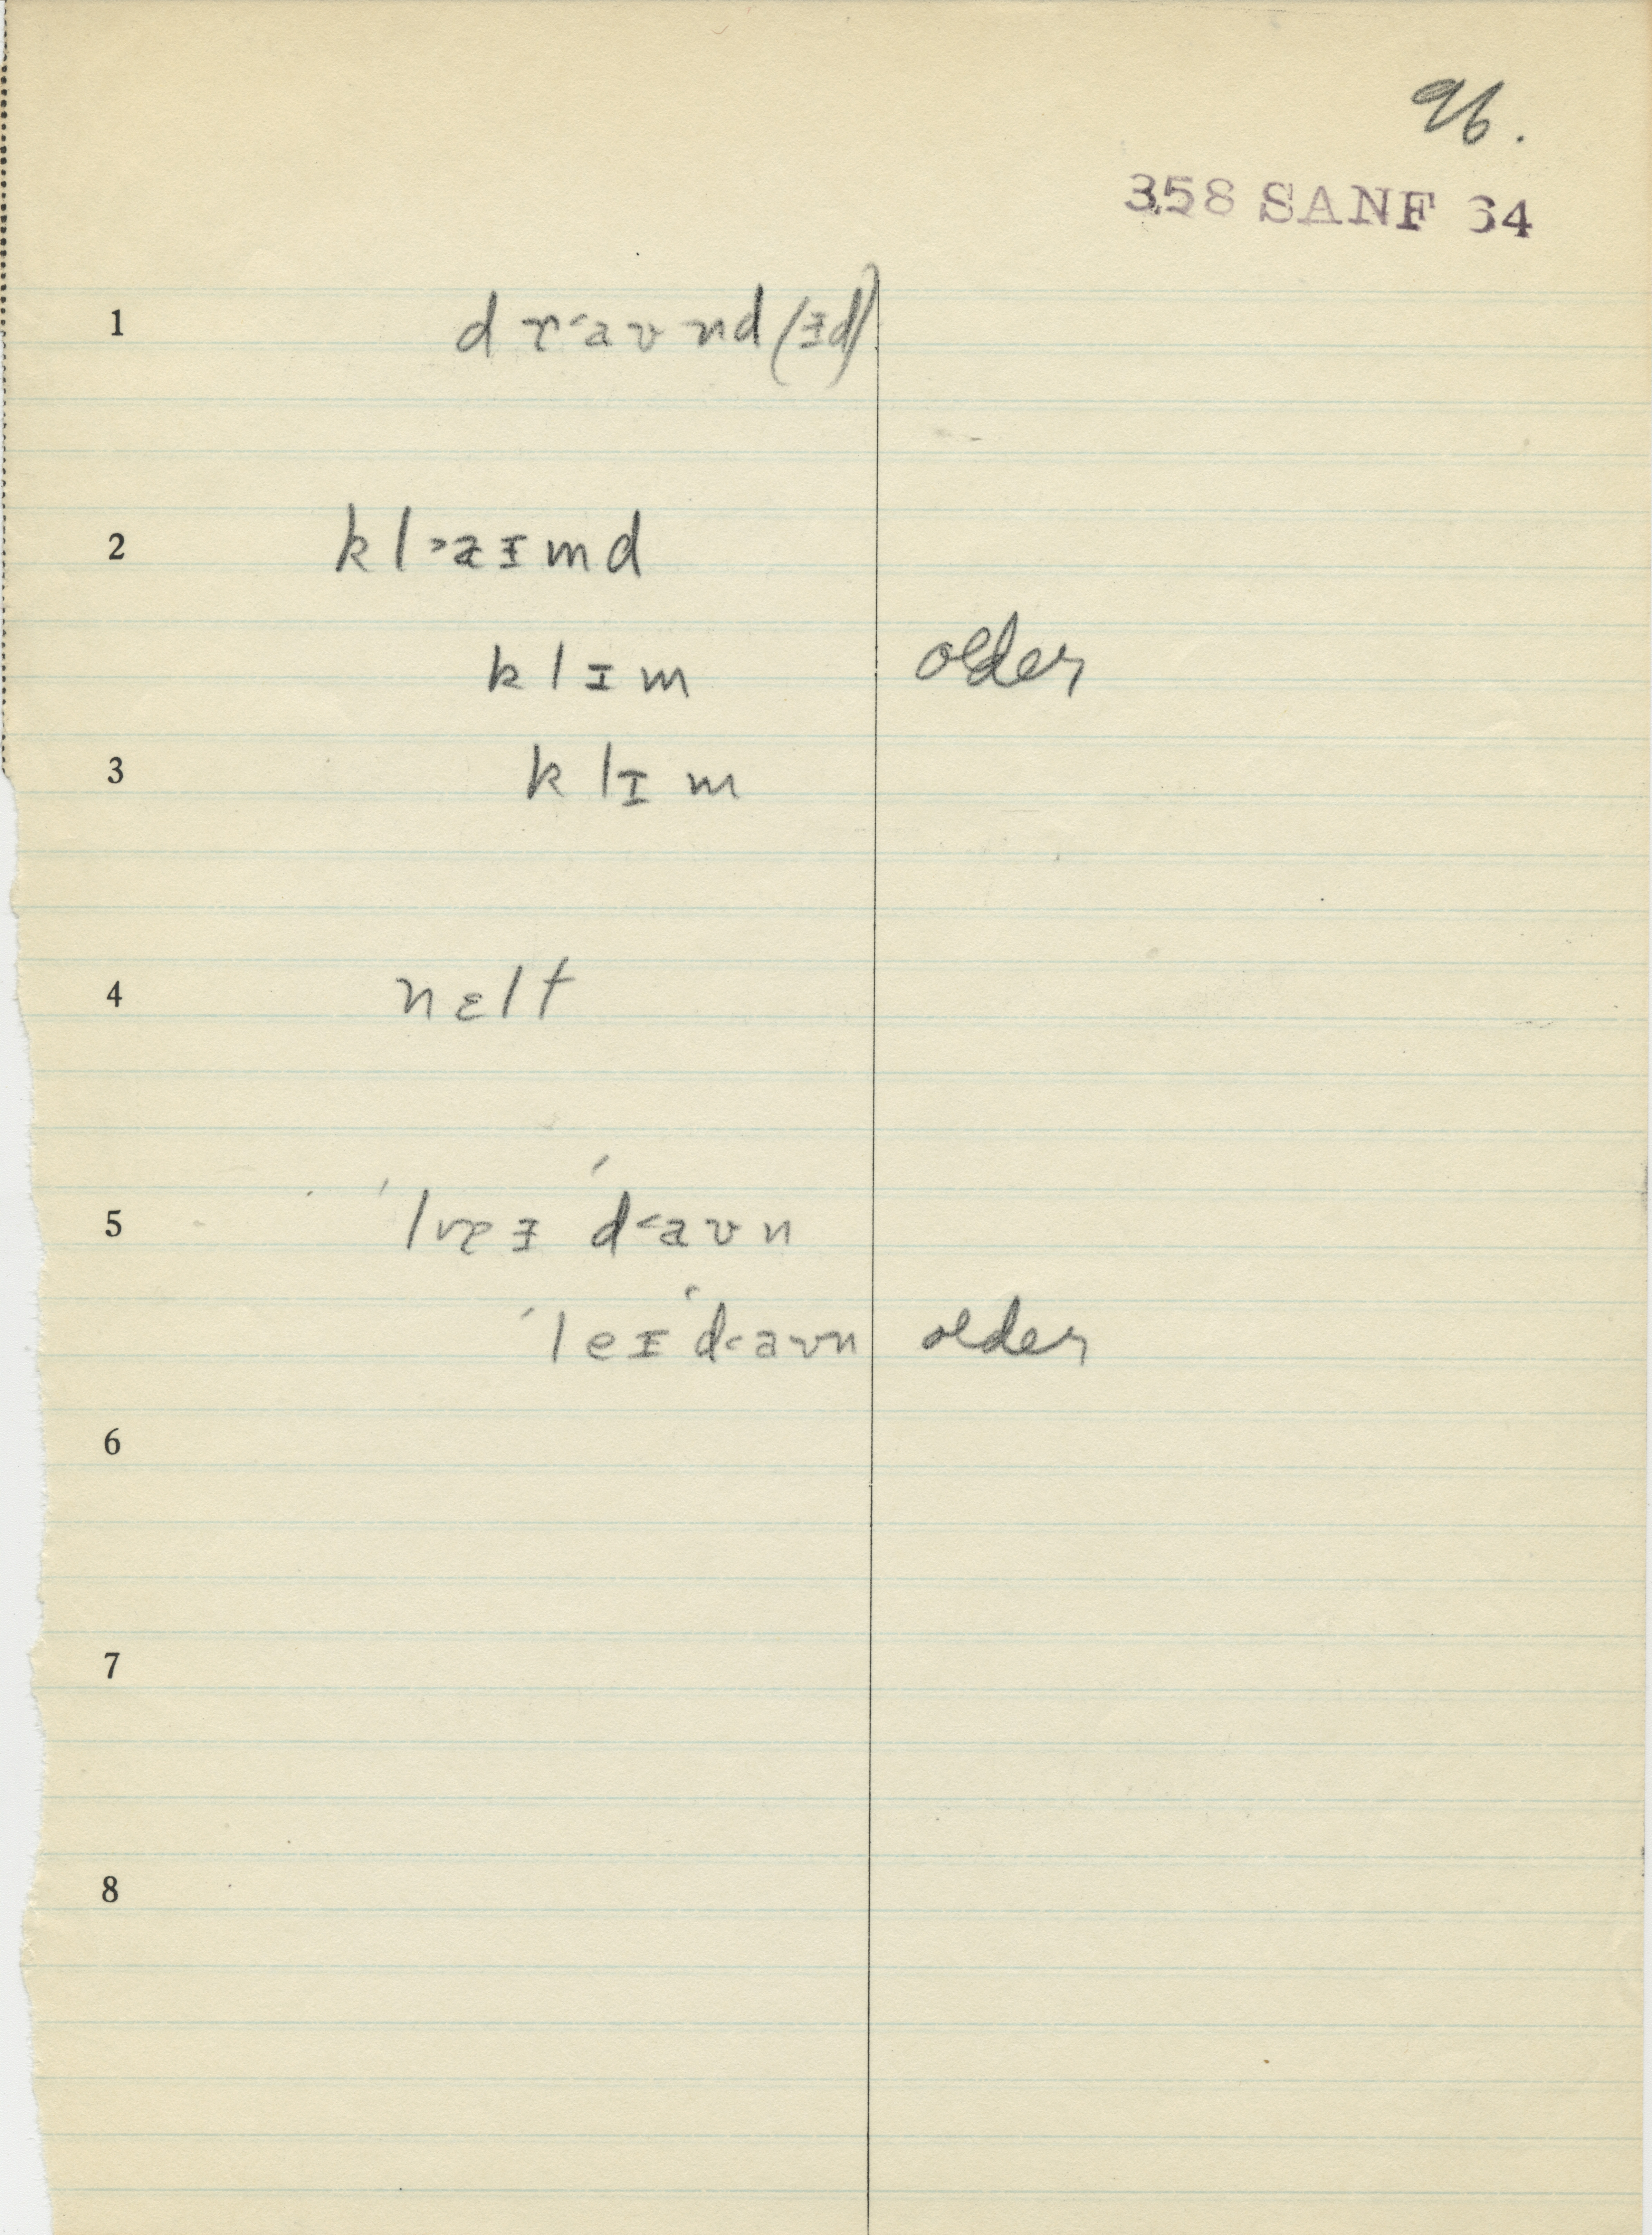 96.
358 SANF 64
1 d r˂a ʊ nd (ɨd)
2 k l ˃a ɨ m d
k l ɪ m older
3 k l ɪ m
4 n ɛ l t
5 ˈd˂a ʊ n
ˈl e ɪ ˈd˂a ʊ n older
6
7
8